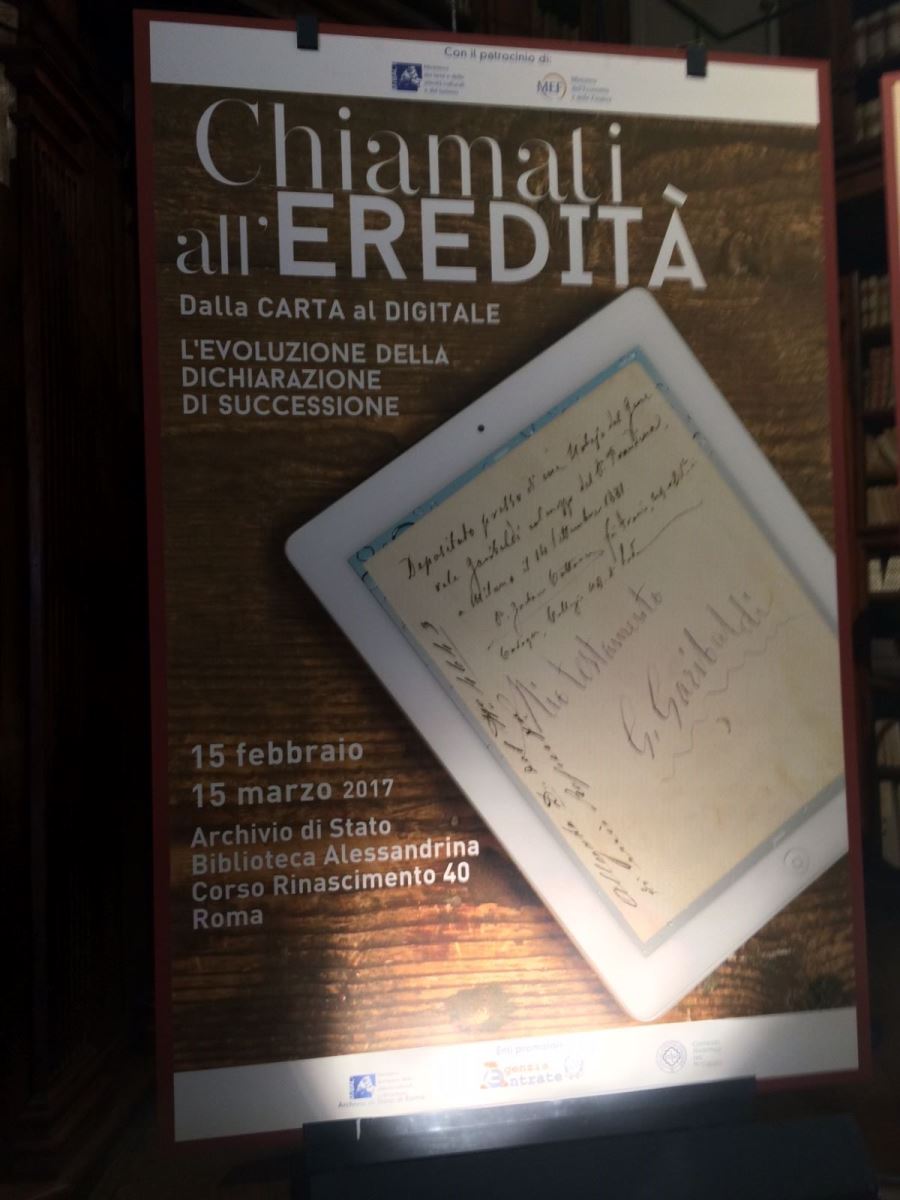 Con il patrocinio di:
MEF Ministero
dell'Economia
e delle Finanze
Chiamati
all'EREDITÀ
Dalla CARTA al DIGITALE
L'EVOLUZIONE DELLA
DICHIARAZIONE
DI SUCCESSIONE
Depositato presso di me
Garibaldi col mezzo del
a Milano il 14 Settembre 1881
Mio testamento
G. Garibaldi
15 febbraio
15 marzo 2017
Archivio di Stato
Biblioteca Alessandrina
Corso Rinascimento 40
Roma
Enti promotori:
Archivio di Stato di Roma
Agenzia
Entrate